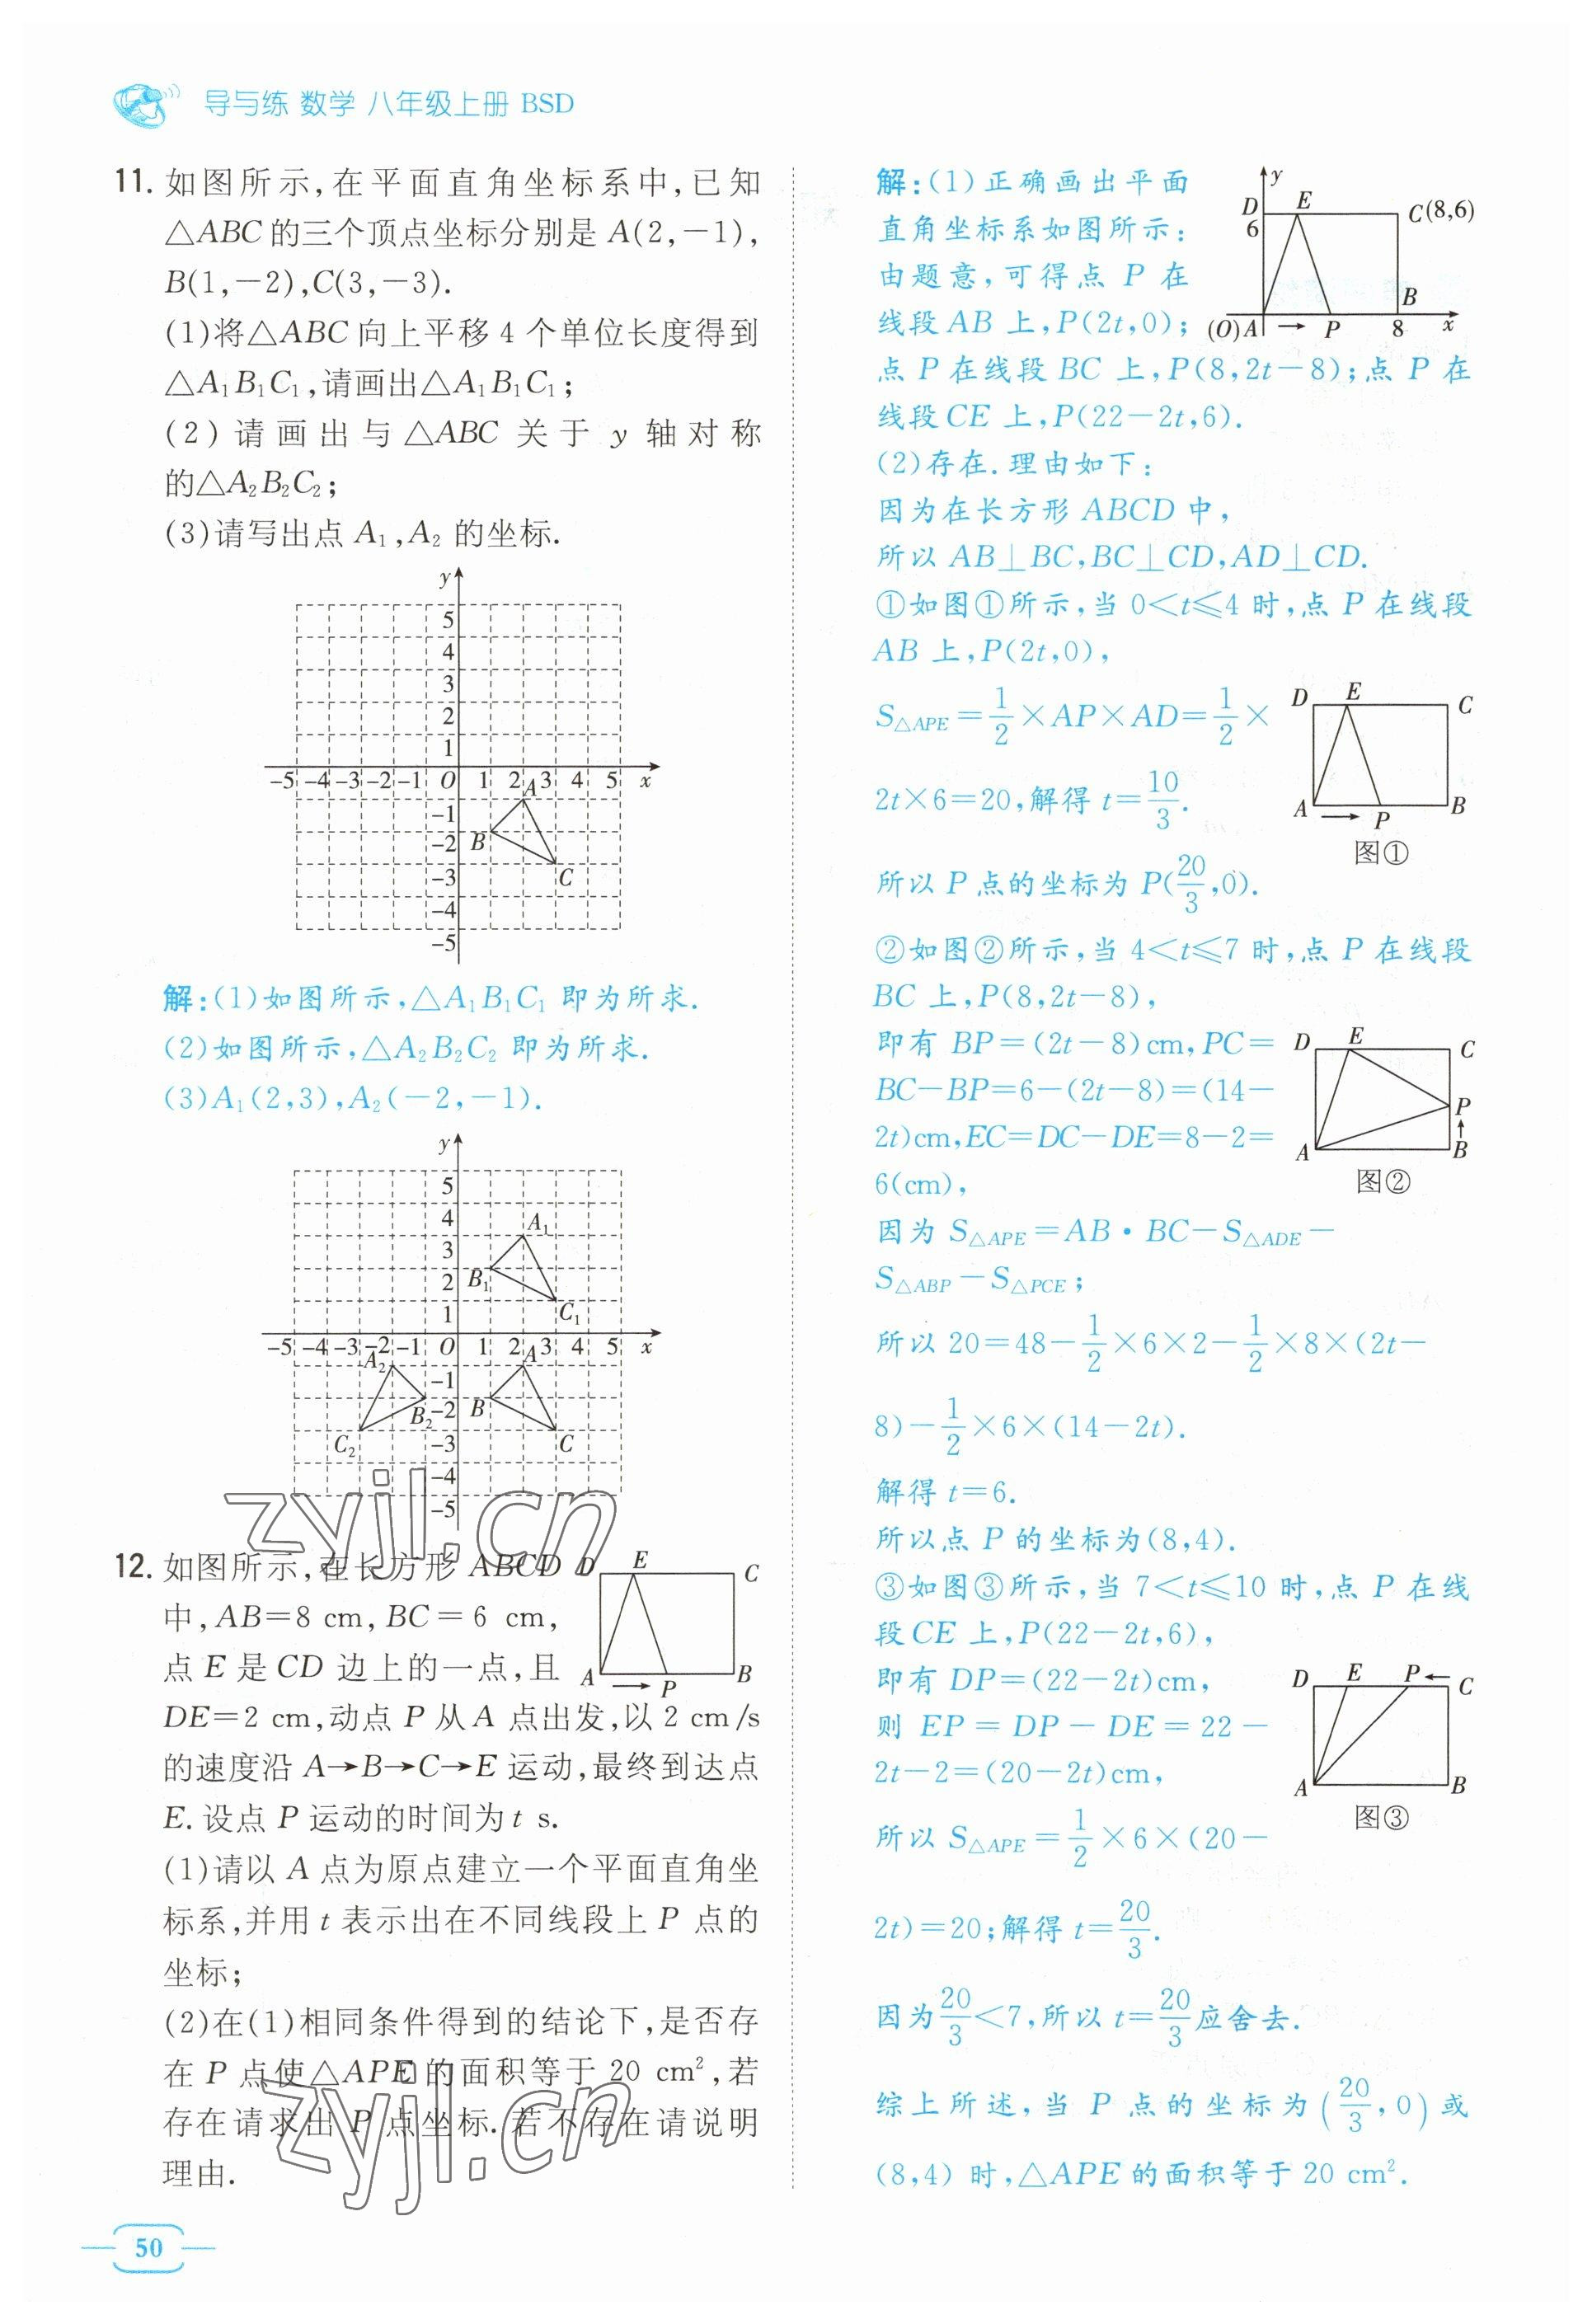 导与练 数学 八年级上册 BSD
11. 如图所示,在平面直角坐标系中,已知
△ABC的三个顶点坐标分别是 A(2,-1),
B(1,-2),C(3,-3).
(1)将△ABC向上平移 4 个单位长度得到
△A₁B₁C₁,请画出△A₁B₁C₁;
(2)请画出与△ABC 关于 y 轴对称
的△A₂B₂C₂;
(3)请写出点 A₁,A₂ 的坐标.
y
5
4
3
2
1
-5 -4 -3 -2 -1 O 1 2 3 4 5 x
A
-1
B
-2
-3
C
-4
-5
解:(1)如图所示,△A₁B₁C₁ 即为所求.
(2)如图所示,△A₂B₂C₂ 即为所求.
(3)A₁(2,3),A₂(-2,-1).
y
5
4
A₁
3
2
B₁
1
C₁
-5 -4 -3 -2 -1 O 1 2 3 4 5 x
A₂
A
-1
B₂
-2
B
C₂
-3
C
-4
-5
zyjl.cn
12. 如图所示,在长方形 ABCD
中,AB=8 cm,BC=6 cm,
点 E 是 CD 边上的一点,且
DE=2 cm,动点 P 从 A 点出发,以 2 cm/s
的速度沿 A→B→C→E 运动,最终到达点
E.设点 P 运动的时间为 t s.
D E C
A → P B
(1)请以 A 点为原点建立一个平面直角坐
标系,并用 t 表示出在不同线段上 P 点的
坐标;
(2)在(1)相同条件得到的结论下,是否存
在 P 点使△APE 的面积等于 20 cm²,若
存在请求出 P 点坐标.若不存在请说明
理由.
zyjl.cn
50
解:(1)正确画出平面
直角坐标系如图所示:
由题意,可得点 P 在
线段 AB 上,P(2t,0);
点 P 在线段 BC 上,P(8,2t-8);点 P 在
线段 CE 上,P(22-2t,6).
y
D E C(8,6)
6
B
(O)A → P 8 x
(2)存在.理由如下:
因为在长方形 ABCD 中,
所以 AB⊥BC,BC⊥CD,AD⊥CD.
①如图①所示,当 0<t≤4 时,点 P 在线段
AB 上,P(2t,0),
S△APE=1/2×AP×AD=1/2×
2t×6=20,解得 t=10/3.
所以 P 点的坐标为 P(20/3,0).
D E C
A → P B
图①
②如图②所示,当 4<t≤7 时,点 P 在线段
BC 上,P(8,2t-8),
即有 BP=(2t-8)cm,PC=
BC-BP=6-(2t-8)=(14-
2t)cm,EC=DC-DE=8-2=
6(cm),
D E C
P
↑
A B
图②
因为 S△APE=AB·BC-S△ADE-
S△ABP-S△PCE;
所以 20=48-1/2×6×2-1/2×8×(2t-
8)-1/2×6×(14-2t).
解得 t=6.
所以点 P 的坐标为(8,4).
③如图③所示,当 7<t≤10 时,点 P 在线
段 CE 上,P(22-2t,6),
即有 DP=(22-2t)cm,
则 EP=DP-DE=22-
2t-2=(20-2t)cm,
所以 S△APE=1/2×6×(20-
2t)=20;解得 t=20/3.
D E P← C
A B
图③
因为20/3<7,所以 t=20/3应舍去.
综上所述,当 P 点的坐标为(20/3,0)或
(8,4)时,△APE 的面积等于 20 cm².